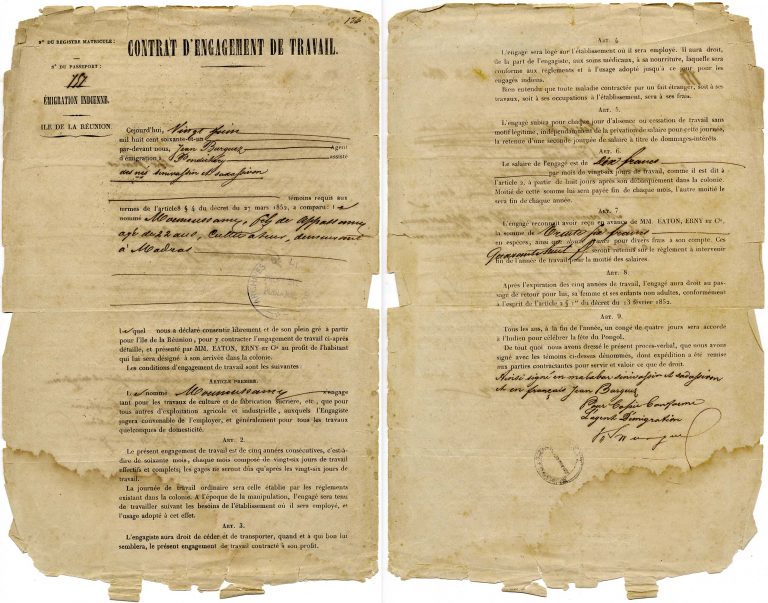 126
N° DU REGISTRE MATRICULE :
N° DU PASSEPORT :
ÉMIGRATION INDIENNE.
ILE DE LA RÉUNION
CONTRAT D'ENGAGEMENT DE TRAVAIL.
Cejourd'hui, Vingt Juin
mil huit cent soixante-et-un
par-devant nous, Jean Burguez Agent
d'émigration à Pondichéry assisté
des nés Sinivassin et Sadassivon
témoins requis aux
termes de l'article 8 § 4 du décret du 27 mars 1852, a comparu : le
nommé Mounoussamy, fils de Appassamy
agé de 22 ans, Cultivateur, demeurant
à Madras
lequel nous a déclaré consentir librement et de son plein gré à partir
pour l'île de la Réunion, pour y contracter l'engagement de travail ci-après
détaillé, et présenté par MM. EATON, ERNY ET Cie au profit de l'habitant
qui lui sera désigné à son arrivée dans la colonie.
Les conditions d'engagement de travail sont les suivantes :
ARTICLE PREMIER.
Le nommé Mounoussamy s'engage
tant pour les travaux de culture et de fabrication sucrière, etc., que pour
tous autres d'exploitation agricole et industrielle, auxquels l'Engagiste
jugera convenable de l'employer, et généralement pour tous les travaux
quelconques de domesticité.
ART. 2.
Le présent engagement de travail est de cinq années consécutives, c'est-à-
dire de soixante mois, chaque mois composé de vingt-six jours de travail
effectifs et complets; les gages ne seront dûs qu'après les vingt-six jours de
travail.
La journée de travail ordinaire sera celle établie par les règlements
existant dans la colonie. A l'époque de la manipulation, l'engagé sera tenu
de travailler suivant les besoins de l'établissement où il sera employé, et
l'usage adopté à cet effet.
ART. 3.
L'engagiste aura droit de céder et de transporter, quand et à qui bon lui
semblera, le présent engagement de travail contracté à son profit.
ART. 4.
L'engagé sera logé sur l'établissement où il sera employé. Il aura droit,
de la part de l'engagiste, aux soins médicaux, à sa nourriture, laquelle sera
conforme aux règlements et à l'usage adopté jusqu'à ce jour pour les
engagés indiens.
Bien entendu que toute maladie contractée par un fait étranger, soit à ses
travaux, soit à ses occupations à l'établissement, sera à ses frais.
ART. 5.
L'engagé subira pour chaque jour d'absence ou cessation de travail sans
motif légitime, indépendamment de la privation de salaire pour cette journée,
la retenue d'une seconde journée de salaire à titre de dommages-intérêts.
ART. 6.
Le salaire de l'engagé est de Dix francs
par mois de vingt-six jours de travail, comme il est dit à
l'article 2, à partir de huit jours après son débarquement dans la colonie.
Moitié de cette somme lui sera payée fin de chaque mois, l'autre moitié le
sera fin de chaque année.
ART. 7.
L'engagé reconnaît avoir reçu en avance de MM. EATON, ERNY ET Cie,
la somme de Trente six francs
en espèces, ainsi que douze francs pour divers frais à son compte. Ces
Quarante huit f. seront retenus sur le règlement à intervenir
fin de l'année de travail pour la moitié des salaires.
ART. 8
Après l'expiration des cinq années de travail, l'engagé aura droit au pas-
sage de retour pour lui, sa femme et ses enfants non adultes, conformément
à l'esprit de l'article 2 § 1er du décret du 13 février 1852.
ART. 9.
Tous les ans, à la fin de l'année, un congé de quatre jours sera accordé
à l'Indien pour célébrer la fête du Pongol.
De tout quoi nous avons dressé le présent procès-verbal, que nous avons
signé avec les témoins ci-dessus dénommés, dont expédition a été remise
aux parties contractantes pour servir et valoir ce que de droit.
Ainsi signé en malabar Sinivassin et Sadassivon
et en français Jean Burguez
Pour Copie Conforme
L'agent d'émigration